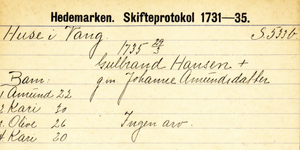 Hedemarken. Skifteprotokol 1731—35.
Huse i Vang
1735 29/8
S 533b
Gulbrand Hansen +
Barn: gm Johanne Amundsdatter
1 Amund 22
2 Kari 30
3 Olive 26 Ingen arv.
4 Kari 20